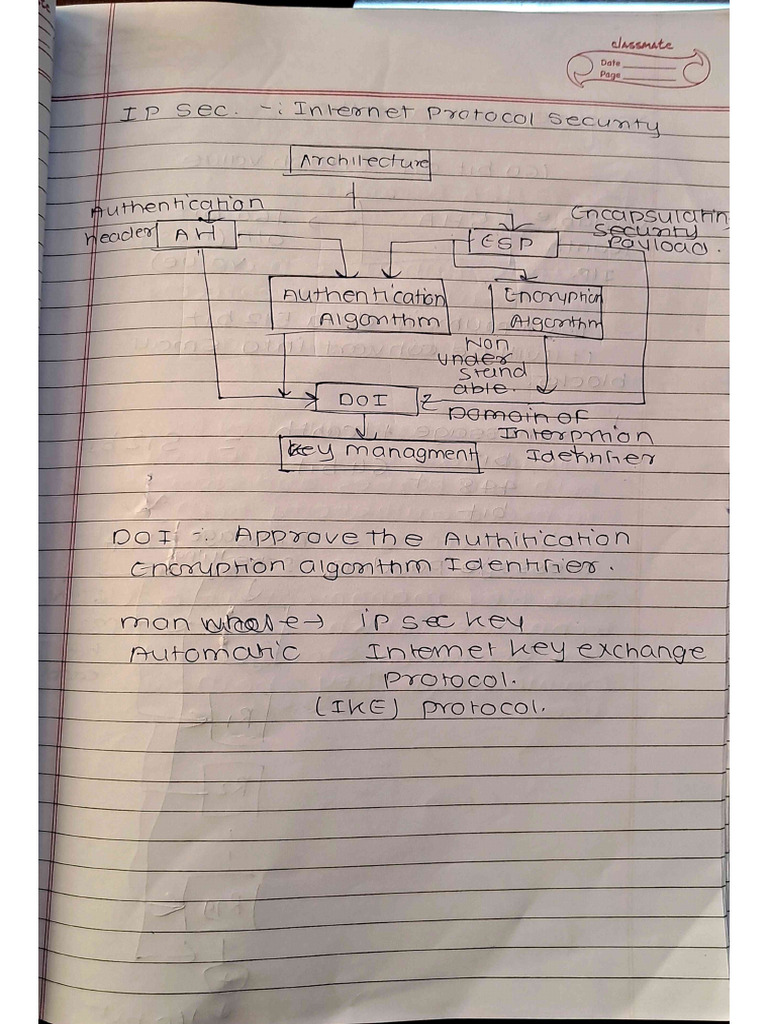 classmate
Date
Page
IP Sec. -: Internet Protocol Security
Architecture
Authentication
header
AH
ESP
Encapsulatin
Security
Payload.
Authentication
Algorithm
Encryption
Algorithm
Non
under
stand
able.
DOI
Domain of
Interprtion
Identifier
Key Managment
DOI -: Approve the Authitication
Encryption algorithm Identifier.
man e → ip sec key
Automatic Internet key exchange
Protocol.
(IKE) Protocol.